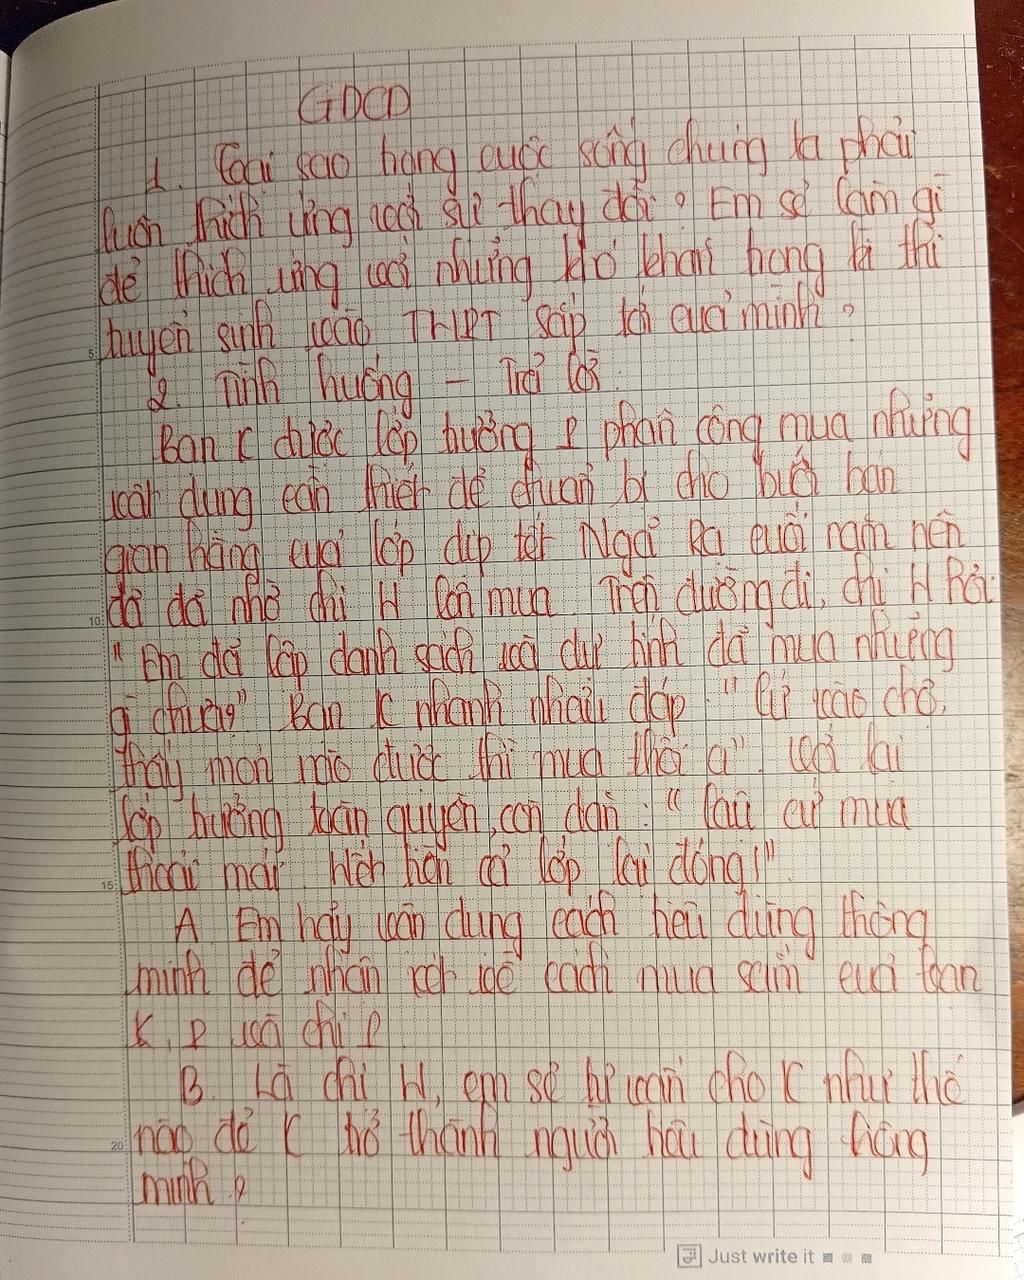 GDCD
1. Tại sao trong cuộc sống chúng ta phải
luôn thích ứng với sự thay đổi? Em sẽ làm gì
để thích ứng với những khó khăn trong kì thi
tuyển sinh vào THPT sắp tới của mình?
2. Tình huống - Trả lời:
Bạn K được lớp trưởng P phân công mua những
vật dụng cần thiết để chuẩn bị cho buổi bán
gian hàng của lớp dịp tết Ngã Ba cuối năm nên
đã nhờ chị H lên mua. Trên đường đi, chị H hỏi:
"Em đã lập danh sách và dự tính đã mua những
gì chưa?" Bạn K nhanh nhảu đáp: "Cứ vào chợ,
thấy món nào được thì mua thôi ạ". Với lại
lớp trưởng toàn quyền, còn dặn: "Cậu cứ mua
thoải mái. Hết tiền cả lớp lại đóng!"
A. Em hãy vận dụng cách tiêu dùng thông
minh để nhận xét về cách mua sắm của bạn
K, P và chị P
B. Là chị H, em sẽ tư vấn cho K như thế
nào để K trở thành người tiêu dùng thông
minh?
Just write it